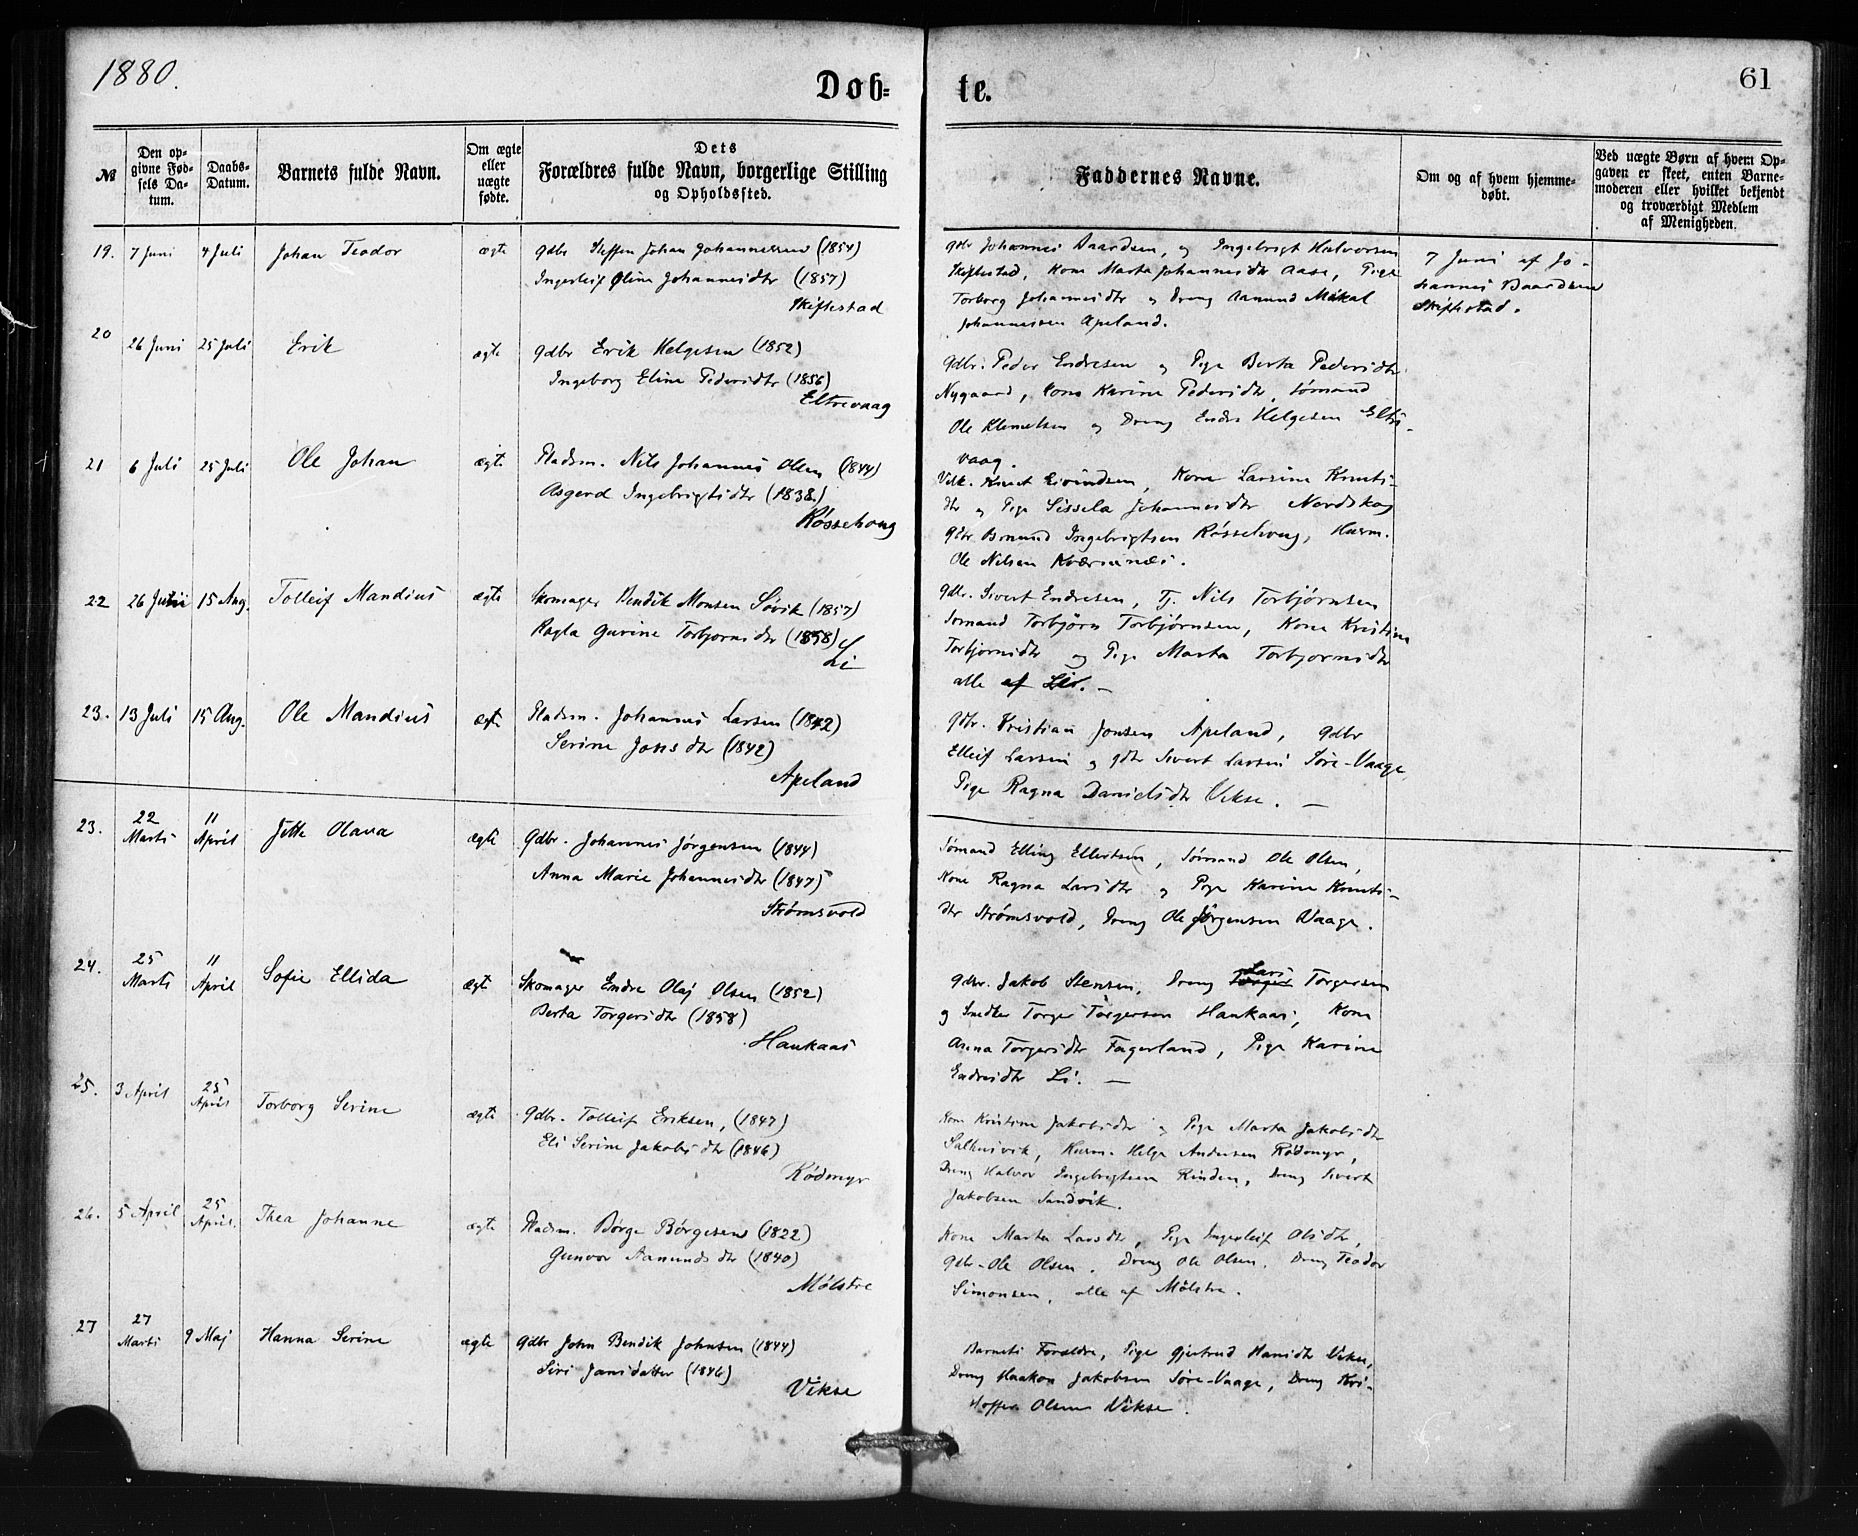 1880.
Døb=
te.
61
№
Den op-
givne Fød-
sels Da-
tum.
Daabs-
Datum.
Barnets fulde Navn.
Om ægte
eller
uægte
fødte.
Dets
Forældres fulde Navn, borgerlige Stilling
og Opholdssted.
Faddernes Navne.
Om og af hvem hjemme-
døbt.
Ved uægte Børn af hvem Op-
gaven er skeet, enten Barne-
moderen eller hvilket bekjendt
og troværdigt Medlem
af Menigheden.
19. 7 Juni 4 Juli Johan Teodor ægte Gdbr Steffen Johan Johannessen (1854)
Ingerleif Oline Johannesdtr (1857)
Skiftestad
Gdbr Johannes Baardsen, og Ingebrigt Halvorsen
Skiftestad, Kone Marta Johannesdtr Aase, Pige
Torborg Johannesdtr og Dreng Aanund Mikal
Johannessen Apeland.
7 Juni af Jo-
hannes Baardsen
Skiftestad.
20 26 Juni 25 Juli Erik ægte Gdbr Erik Helgesen (1852)
Ingeborg Eline Pedersdtr (1856)
Eltrevaag
Gdbr. Peder Endresen og Pige Berta Pedersdtr
Nygaard, Kone Karine Pedersdtr, Sømand
Ole Klemetsen og Dreng Endre Helgesen Eltre-
vaag.
21 6 Juli 25 Juli Ole Johan ægte Pladsm. Nils Johannes Olsen (1844)
Asgerd Ingebrigtsdtr (1838.)
Røssehoug
Knut Eivindsen, Kone Larsine Knuts-
dtr og Pige Sissela Johannesdtr Nordskog
Gdbr. Ingebrigtsen Røssehoug, Husm.
Ole Nilsen Kværnenæs.
22 26 15 Aug. Tolleif Mandius ægte Skomager Bendik Monsen Søvik (1857)
Ragla Gurine Torbjørnsdtr (1858)
Li
Gdbr. Sivert Endresen, Tj. Nils Torbjørnsen
Sømand Torbjørn Torbjørnsen, Kone Kristine
Torbjørnsdtr og Pige Marta Torbjørnsdtr
alle af Li. —
23. 13 Juli 15 Aug. Ole Mandius ægte Pladsm. Johannes Larsen (1842)
Serine Jonsdtr (1842)
Apeland
Gdbr. Kristian Jonsen Apeland, Gdbr
Elleif Larsen og Gdbr Sivert Larsen Søre-Vaage,
Pige Ragna Danielsdtr Vikse. —
23. 22
Marts 11
April Jette Olava ægte Gdbr. Johannes Jørgensen (1844)
Anna Marie Johannesdtr (1847)
Strømsvold
Sømand Elling Ellertsen, Sømand Ole Olsen,
Kone Ragna Larsdtr og Pige Karine Knuts-
dtr Strømsvold, Dreng Ole Jørgensen Vaage.
24. 25
Marts 11
April Sofie Ellida ægte Skomager Endre Olaj Olsen (1852)
Berta Torgersdtr (1858)
Haukaas
Gdbr. Jakob Stensen, Dreng Lars Torgersen
og Smed Torger Torgersen Haukaas, Kone
Anna Torgersdtr Fagerland, Pige Karine
Endresdtr Li. —
25. 3 April 25
April Torborg Serine ægte Gdbr. Tolleif Eriksen, (1847)
Eli Serine Jakobsdtr (1846)
Rødmyr
Kone Kristine Jakobsdtr og Pige Marta Jakobsdtr
Salhusvik, Husm. Helge Andersen Rødmyr,
Dreng Halvor Ingebrigtsen Rinden, Dreng Sivert
Jakobsen Sandvik.
26. 5 April 25
April. Thea Johanne ægte Pladsm. Børge Børgesen (1822)
Gunvor Aanundsdtr (1840)
Mølstre
Kone Marta Larsdtr, Pige Ingerleif Olsdtr,
Gdbr. Ole Olsen, Dreng Ole Olsen, Dreng Teodor
Simonsen, alle af Mølstre.
27 27
Marts 9 Maj Hanna Serine ægte Gdbr John Bendik Johnsen (1844)
Siri Jansdatter (1846)
Vikse
Barnets Forældre, Pige Gjertrud Hansdtr Vikse,
Dreng Haakon Jakobsen Søre-Vaage, Dreng Kri-
stoffer Olsen Vikse.